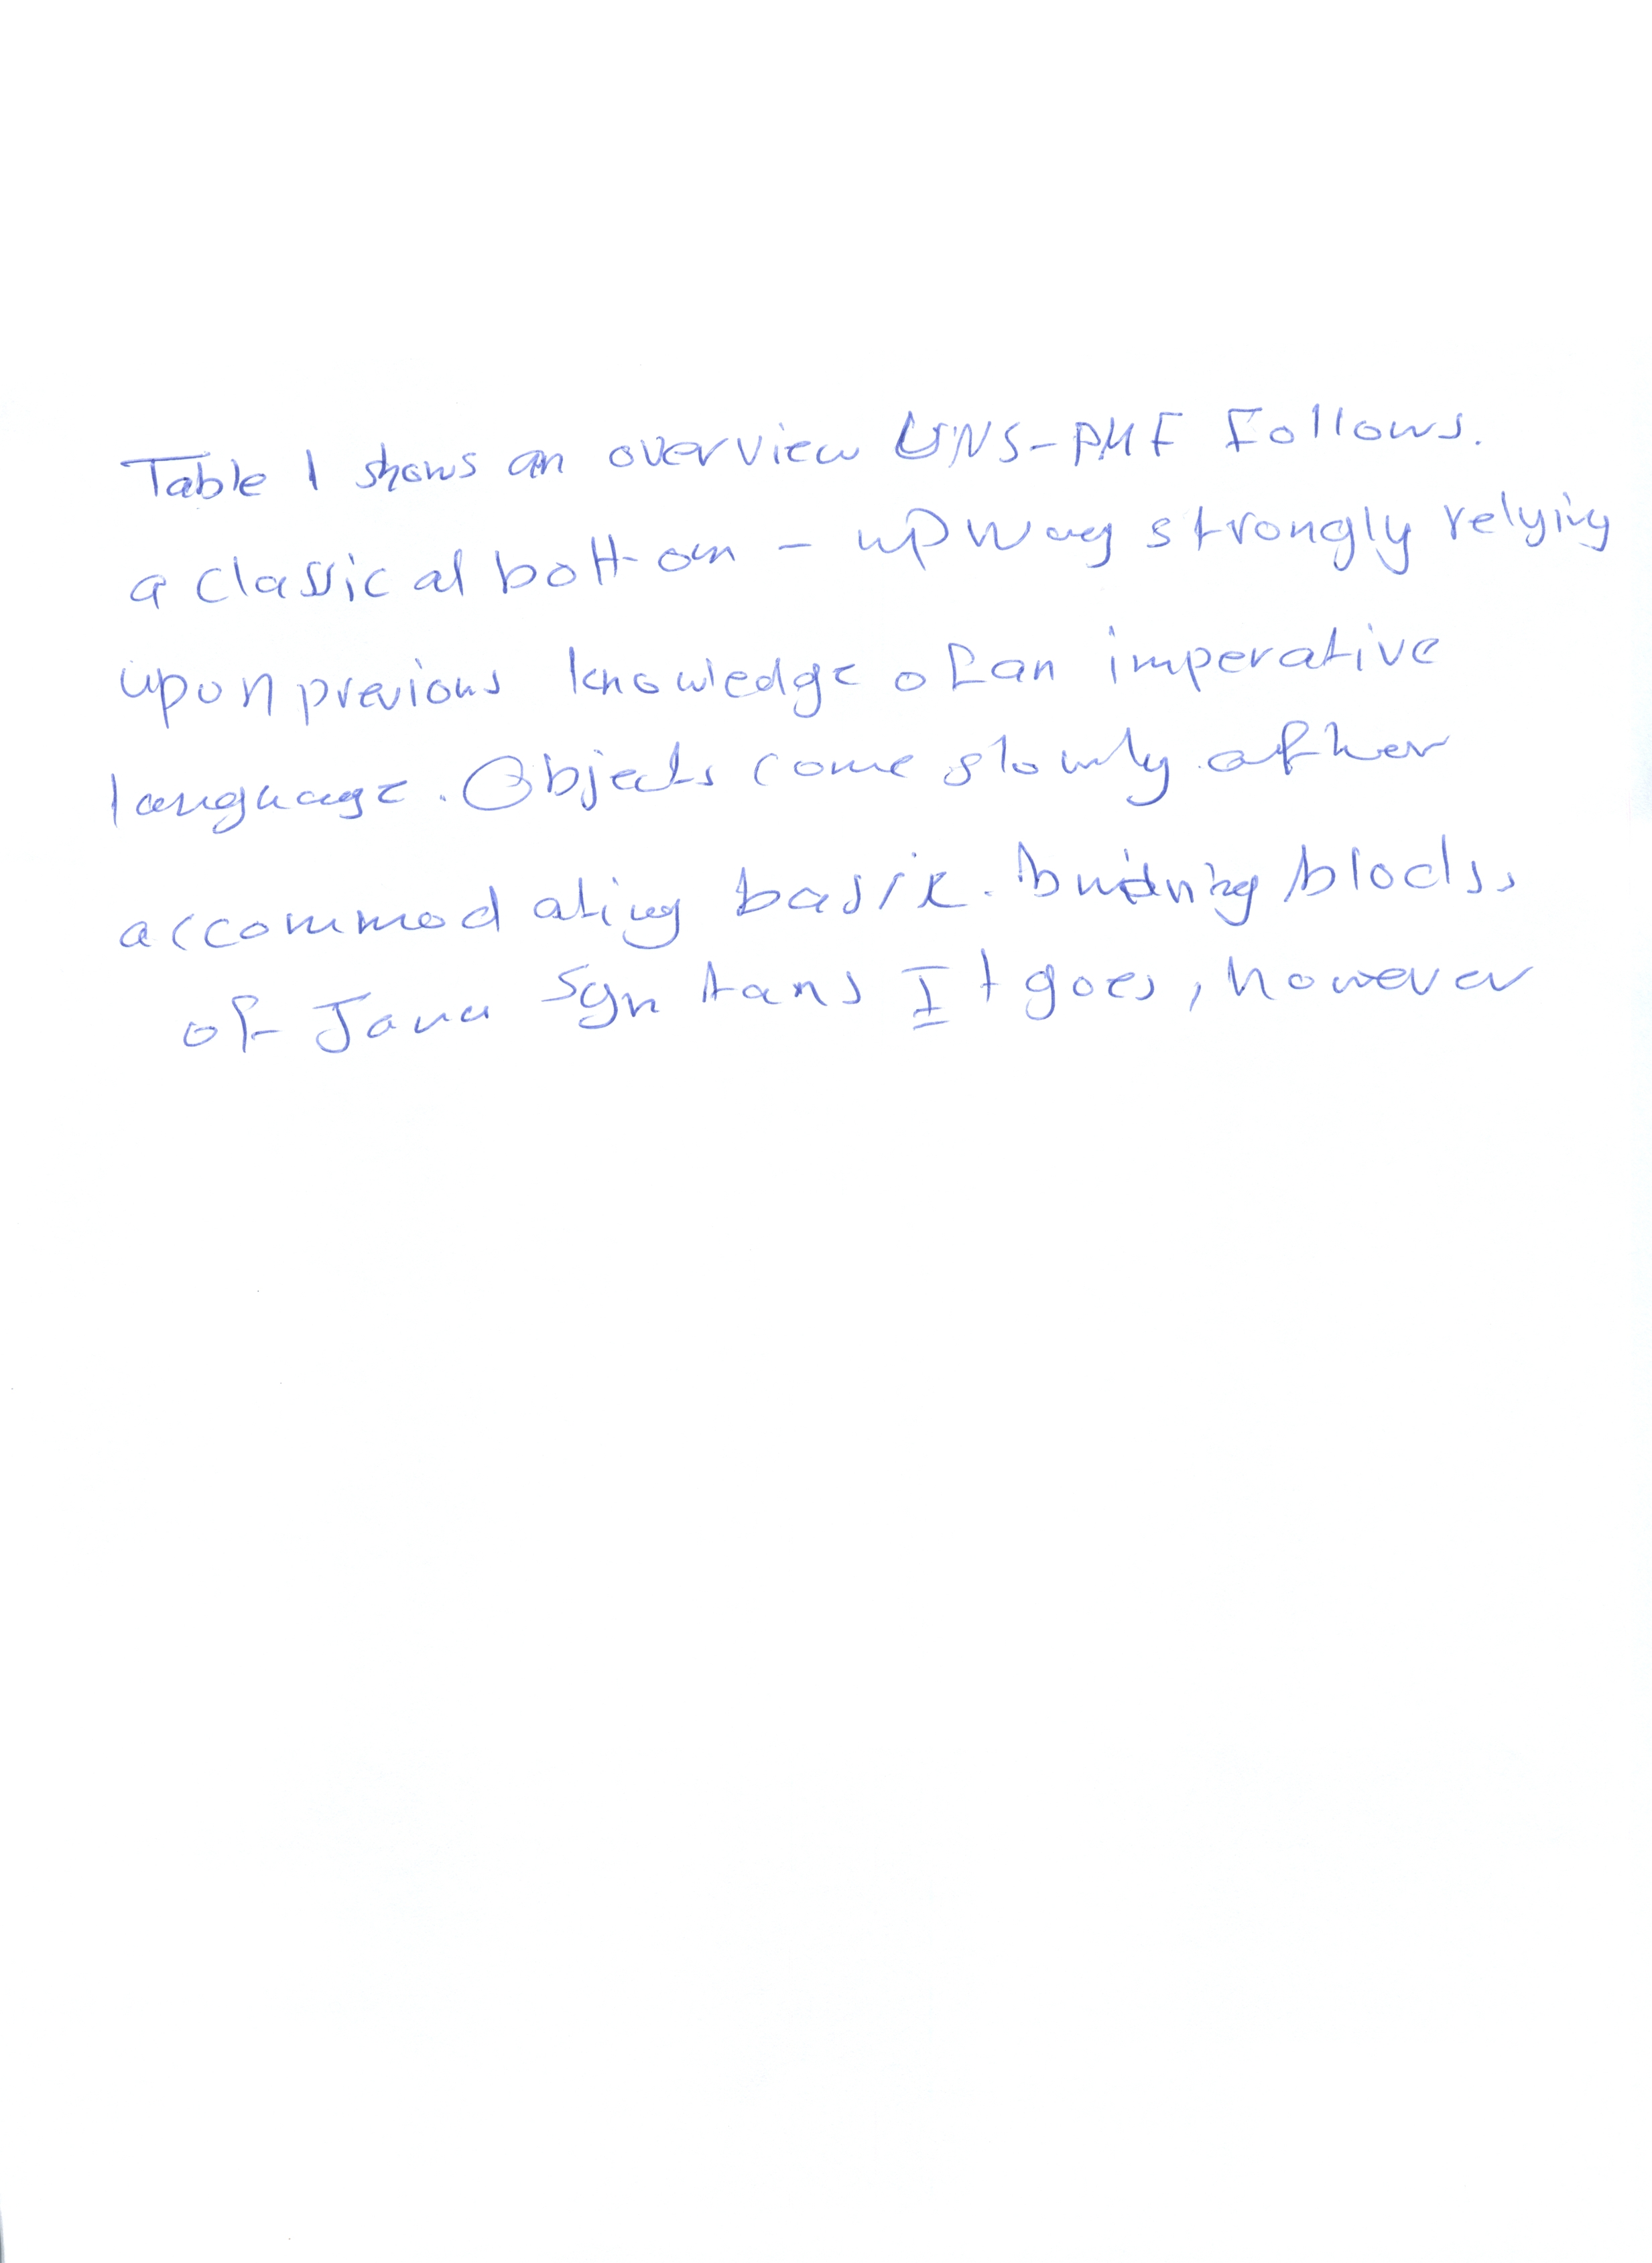 Table 1 shows an overview UNS-PMF Follows.
a classical bottom - up way strongly relying
upon previous knowledge of an imperative
language. Objects come slowly after
accommodating basic building blocks
of Java It goes, however